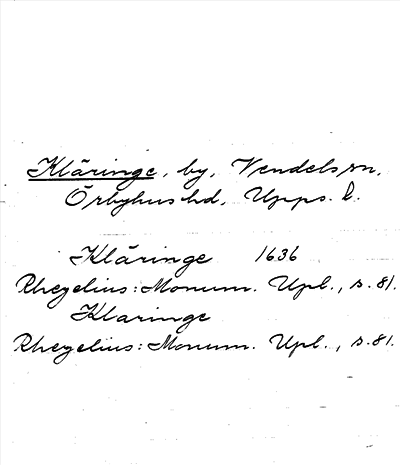 Kläringe, by, Vendels sn,
Örbyhus hd, Upps. l.
Kläringe 1636
Rhezelius: Monum. Upl., s. 81.
Klaringe
Rhezelius: Monum. Upl., s. 81.